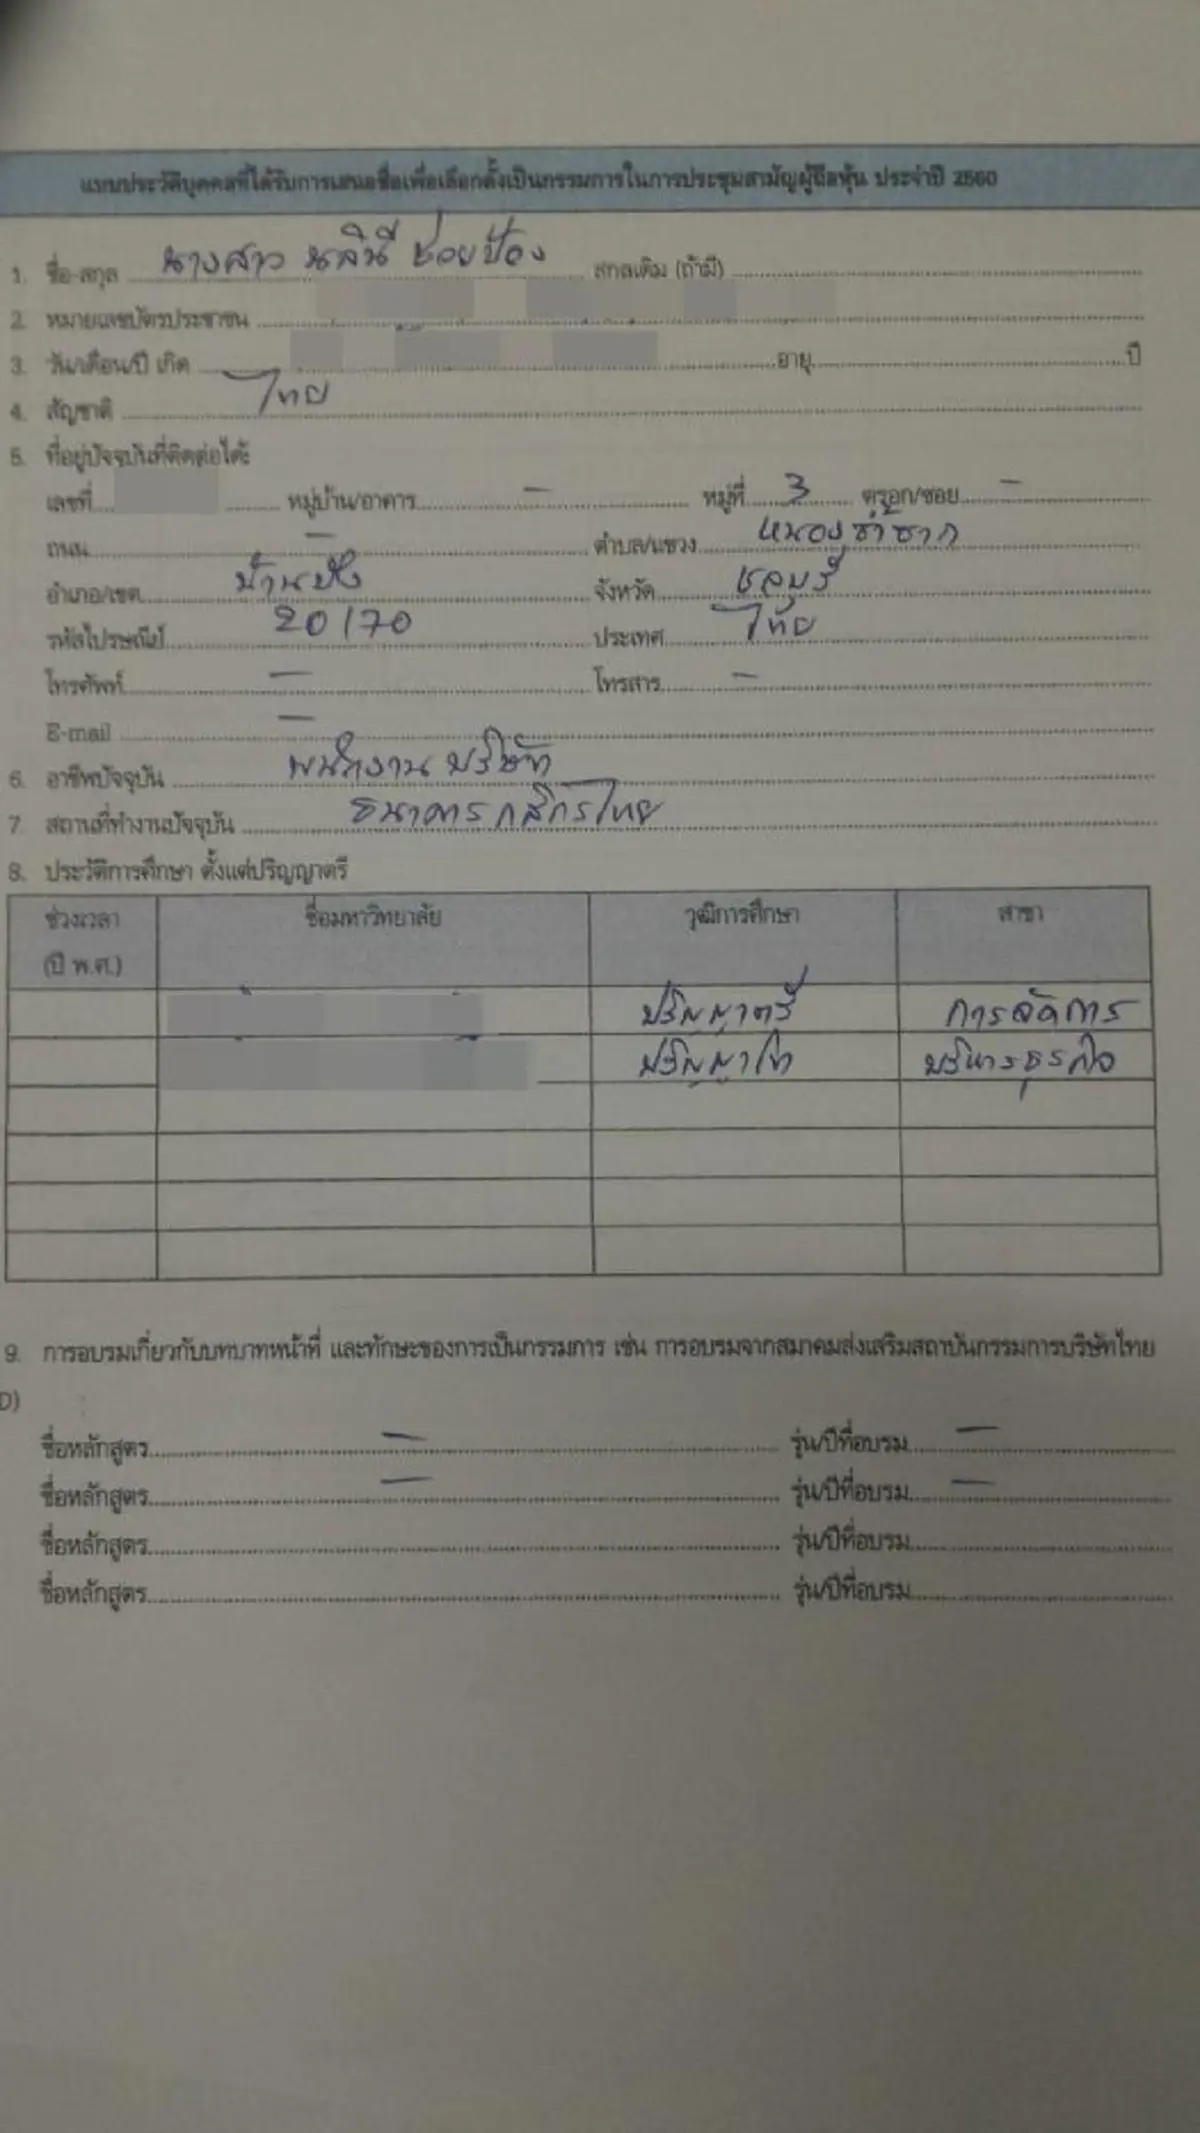 แบบประวัติบุคคลที่ได้รับการเสนอชื่อเพื่อเลือกตั้งเป็นกรรมการในการประชุมสามัญผู้ถือหุ้น ประจำปี 2560
1. ชื่อ-สกุล นางสาว นลินี ช่อยป้อง สกุลเดิม (ถ้ามี)
2. หมายเลขบัตรประชาชน
3. วัน/เดือน/ปี เกิด อายุ ปี
4. สัญชาติ ไทย
5. ที่อยู่ปัจจุบันที่ติดต่อได้:
เลขที่ หมู่บ้าน/อาคาร - หมู่ที่ 3 ตรอก/ซอย -
ถนน - ตำบล/แขวง หนองซ้ำซาก
อำเภอ/เขต บ้านบึง จังหวัด ชลบุรี
รหัสไปรษณีย์ 20170 ประเทศ ไทย
โทรศัพท์ - โทรสาร -
E-mail -
6. อาชีพปัจจุบัน พนักงาน บริษัท
7. สถานที่ทำงานปัจจุบัน ธนาคารกสิกรไทย
8. ประวัติการศึกษา ตั้งแต่ปริญญาตรี
ช่วงเวลา ชื่อมหาวิทยาลัย วุฒิการศึกษา สาขา
(ปี พ.ศ.)
ปริญญาตรี การจัดการ
ปริญญาโท บริหารธุรกิจ
9. การอบรมเกี่ยวกับบทบาทหน้าที่ และทักษะของการเป็นกรรมการ เช่น การอบรมจากสมาคมส่งเสริมสถาบันกรรมการบริษัทไทย
D)
ชื่อหลักสูตร - รุ่น/ปีที่อบรม -
ชื่อหลักสูตร - รุ่น/ปีที่อบรม -
ชื่อหลักสูตร รุ่น/ปีที่อบรม
ชื่อหลักสูตร รุ่น/ปีที่อบรม